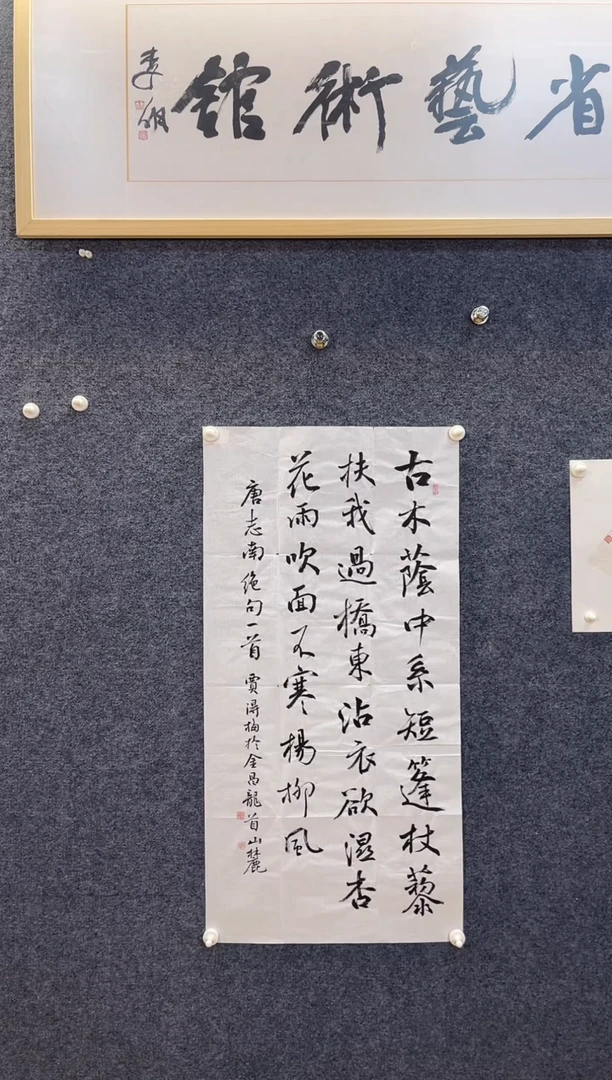 省藝術館
古木蔭中系短篷杖藜
扶我過橋東沾衣欲濕杏
花雨吹面不寒楊柳風
唐志南絶句一首 賈潯梅於金昌龍首山麓